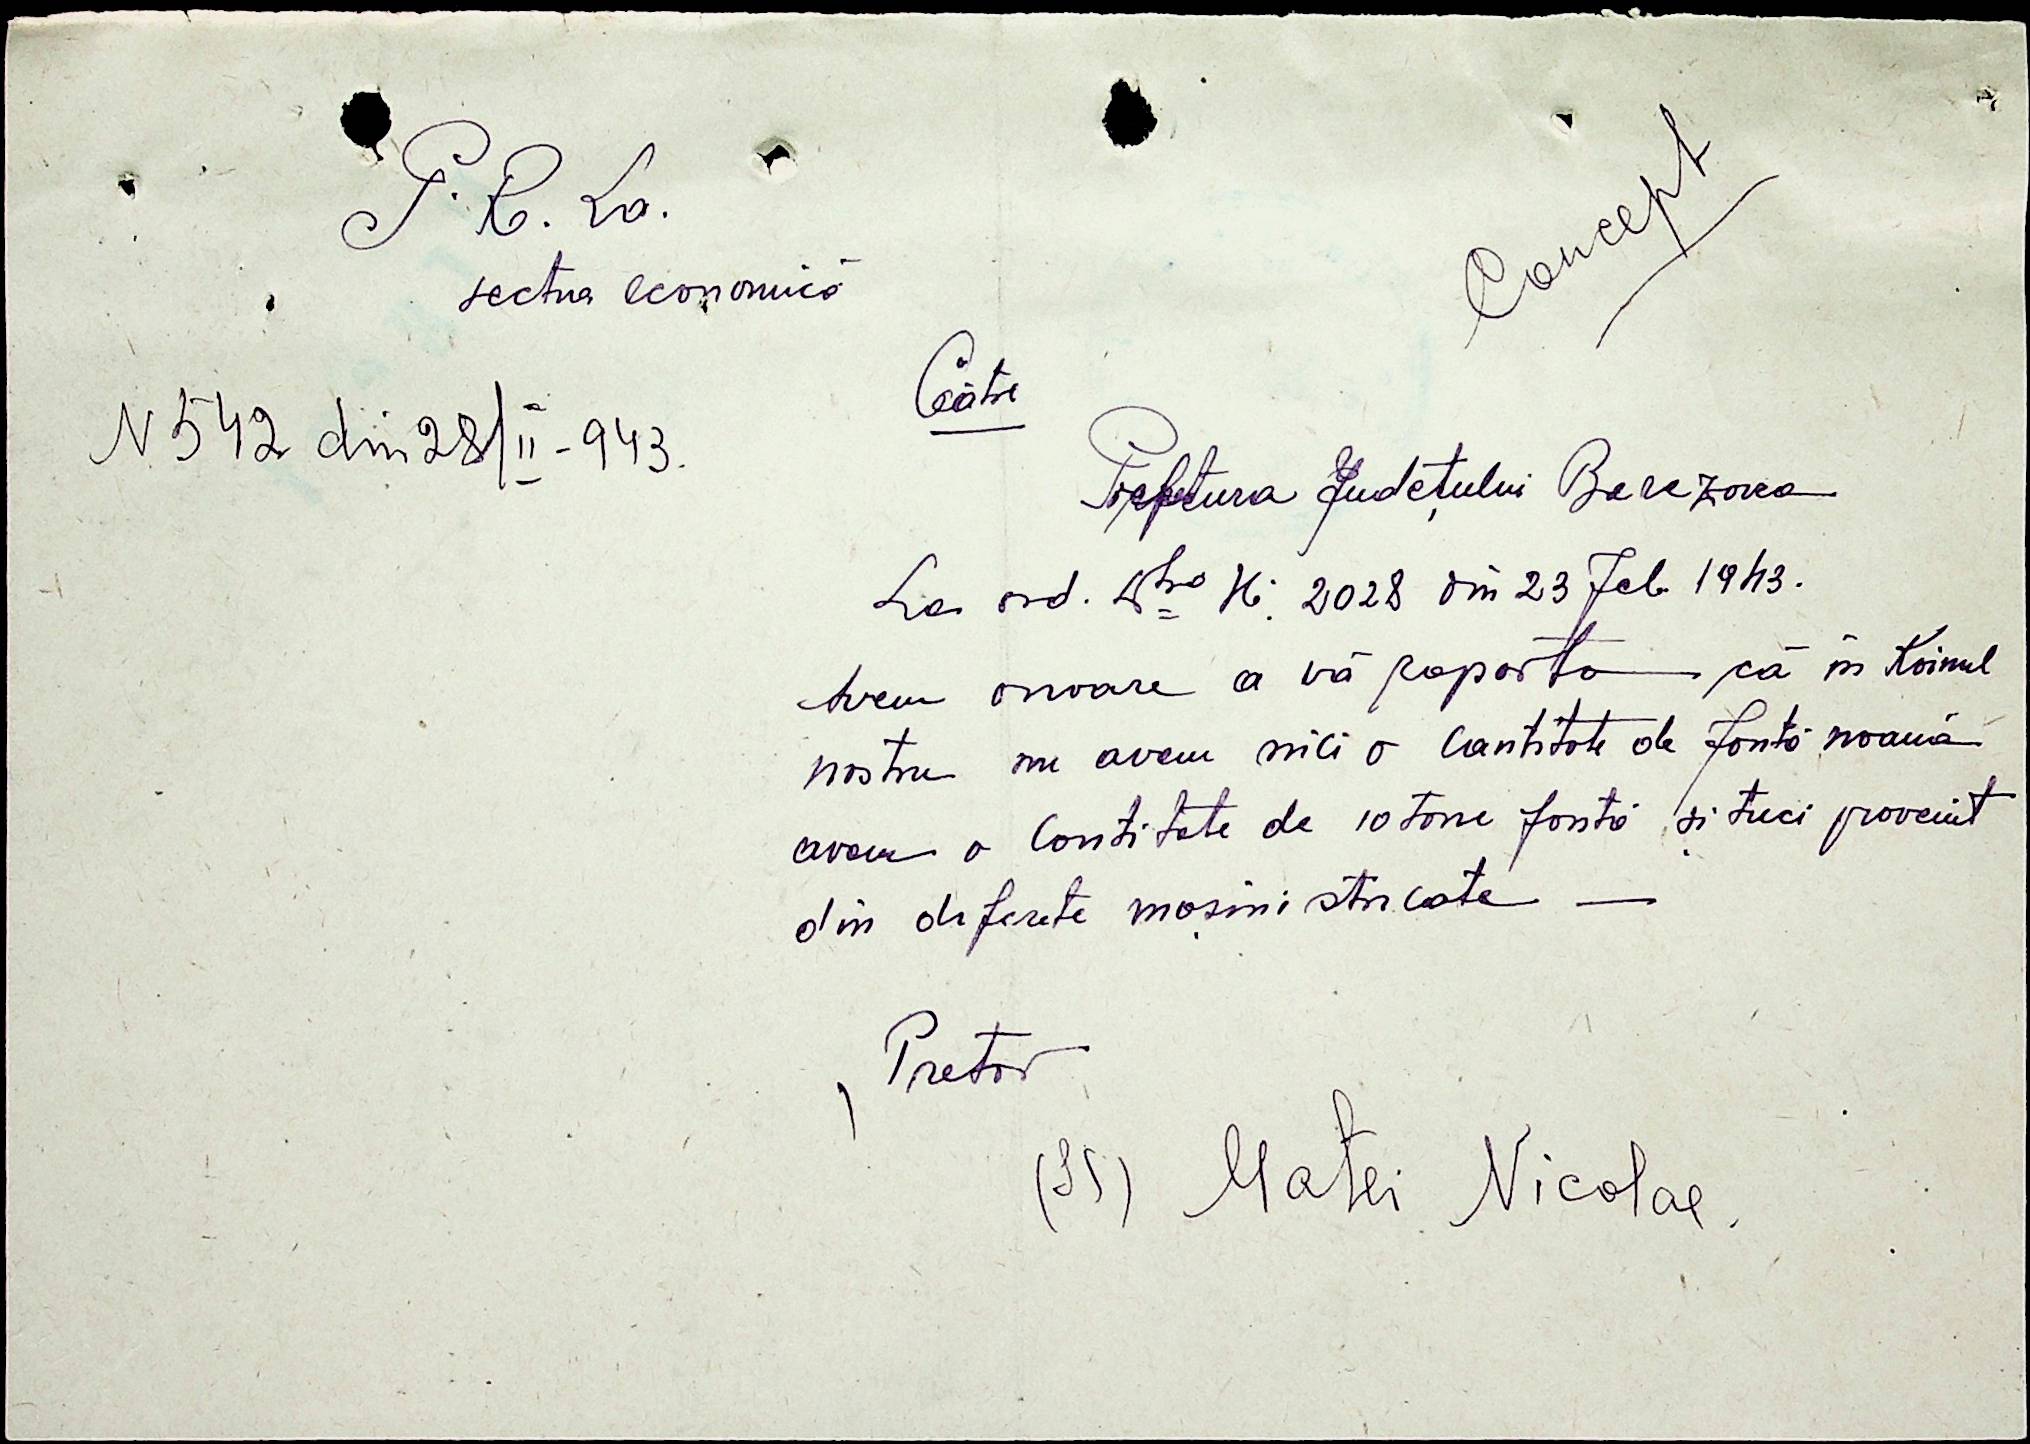 P. R. La.
sectua economică
Concept
N 542 din 28/II-943.
Către
Prefectura Județului Berezovca
La ord. Dvs N. 2028 din 23 Feb. 1943.
Avem onoare a vă raporta că în Raionul
nostru nu avem nici o cantitate de fontă nouă
avem o Cantitate de 10 tone fontă și tuci provenit
din diferete mașini stricate —
Pretor
(ss) Matei Nicolae.